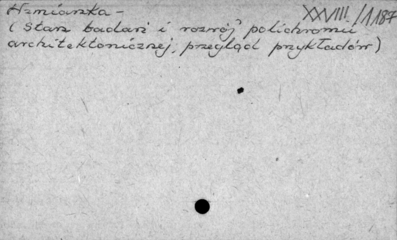 Wzmianka - XXVIII/1187
(Stan badań i rozwój polichromii
architektonicznej, przegląd przykładów)